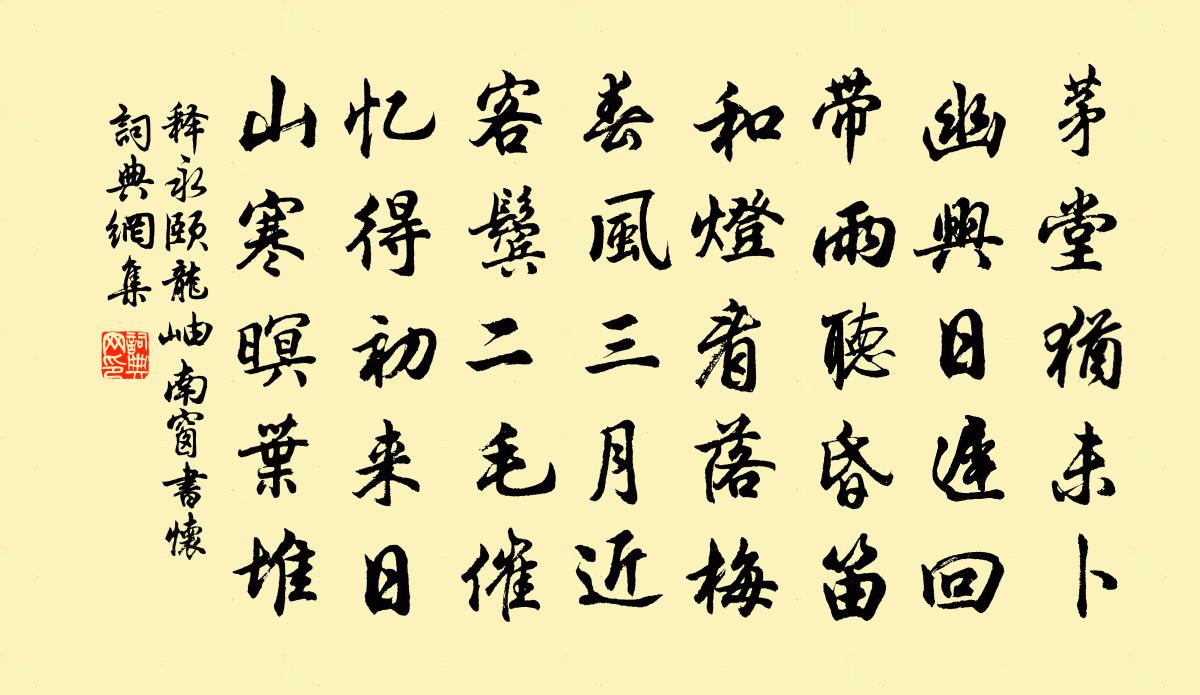 茅堂猶未卜
幽興日遲回
带雨聽昏笛
和燈看落梅
春風三月近
客鬓二毛催
忆得初来日
山寒暝葉堆
释永颐龍岫南窗書懷
詞典網集
詞典网印